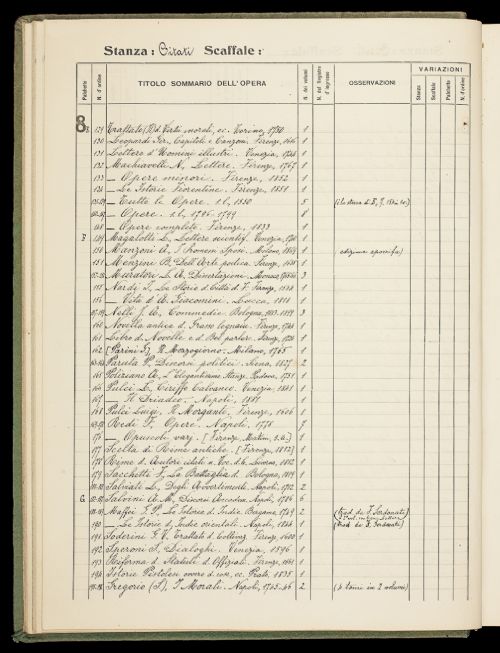 Stanza: Citati Scaffale:
VARIAZIONI
Palchetto N. d'ordine TITOLO SOMMARIO DELL'OPERA N. dei volumi N. del Registro d'ingresso OSSERVAZIONI Stanza Scaffale Palchetto N. d'ordine
8
E 129 Trattato (D) d. Virtù morali, ec. Torino, 1750 1
130 Leopardi Capitoli e Canzoni. Firenze, 1
131 Lettere d'Uomini illustri. Venezia, 1
132 Machiavelli N., Lettere. Firenze, 1767 1
133 — Opere minori. Firenze, 1852 1
134 — Le Istorie Fiorentine. Firenze, 1851 1
— Tutte le Opere. s.l., 1550 5
— Opere. s.l., 1796-1799 8
148 — Opere complete. Firenze, 1833 1
F 149 Magalotti L., Lettere scientif. Venezia, 1
150 Manzoni A., I Promessi Sposi. Milano, 1 edizione
151 Menzini B. Dell'Arte poetica. Firenze, 1
Muratori L. A., Dissertazioni. Monaco, 3
Nardi J., Le Storie d. Città d. F. Firenze, 1
156 — Vita d'A. Giacomini. Lucca, 1818 1
Nelli J. A., Commedie. Bologna, 1883-1899 3
160 Novella antica d. Grasso legnaiuolo. Firenze, 1
161 Libro d. Novelle e d. Bel parlare. Firenze, 1
162 [Parini G.], Il Mezzogiorno. Milano, 1765 1
Paruta P., Discorsi politici. Siena, 1827 2
165 Poliziano A., L'Elegantissime Stanze. Padova, 1751 1
166 Pulci L., Ciriffo Calvaneo. Venezia, 1841 1
167 — Il Driadeo. Napoli, 1881 1
168 Pulci Luigi, Il Morgante. Firenze, 1606 1
Redi F., Opere. Napoli, 1778 7
176 —, Opuscoli varj. [Firenze, s.a.] 1
177 Scelta di Rime antiche. [Firenze, 1812] 1
178 Rime d. Autori citati n. Voc. d. C. Livorno, 1812 1
179 Sacchetti F., La Battaglia d. Bologna, 1819 1
Salviati L., Degli Avvertimenti. Napoli, 1712 2
G Salvini A. M., Discorsi Accadem. Napoli, 1786 6
Maffei G. P., Le Istorie d. Indie. Bergamo, 1749 2 (Trad. da F. Serdonati)
190 —, Le Istorie d. Indie orientali. Napoli, 1 (Trad. da F. Serdonati)
191 Soderini G. V. Trattato d. Coltivaz. Firenze, 1600 1
192 Speroni S., Dialoghi. Venezia, 1596 1
193 Riforma d. Statuti d. Offiziali. Firenze, 1
194 Istorie Pistolesi ovvero d. cose, ec. Prato, 1835 1
Gregorio (S.), I Morali. Napoli, 1745-46 2 (4 tomi in 2 volumi)